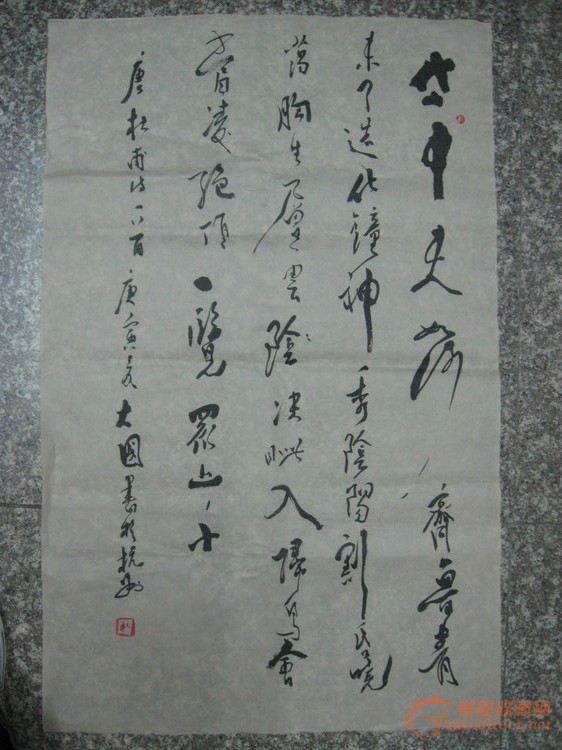 岱宗夫如何齊魯青
未了造化鐘神秀陰陽割昏曉
蕩胸生層雲陰決眦入歸鳥會
當凌絕頂一覽眾山小
唐杜甫詩一首庚寅夏大書於杭州